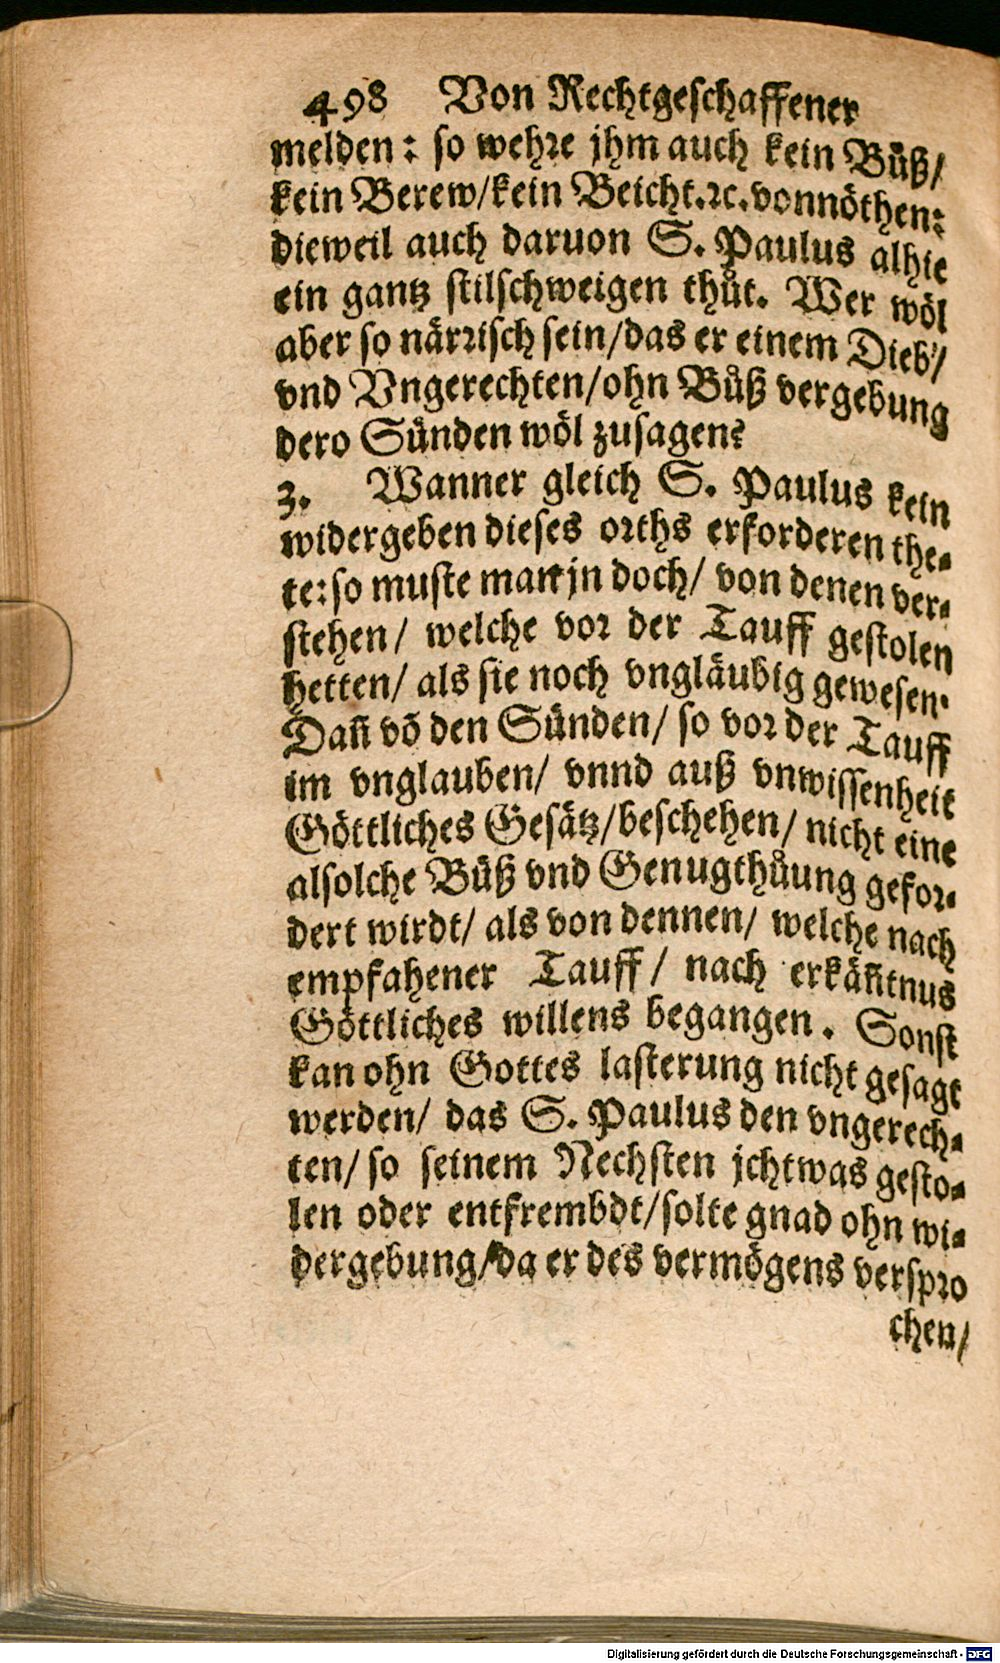 498 Von Rechtgeschaffener
melden: so wehre jhm auch kein Bůß/
kein Berew/kein Beicht.ꝛc.vonnöthen:
dieweil auch daruon S. Paulus alhie
ein gantz stilschweigen thůt. Wer wöl
aber so närrisch sein/das er einem Dieb/
vnd Vngerechten/ohn Bůß vergebung
dero Sünden wöl zusagen?
3. Wanner gleich S. Paulus kein
widergeben dieses orths erforderen the-
te:so muste man jn doch/ von denen ver-
stehen/ welche vor der Tauff gestolen
hetten/ als sie noch vngläubig gewesen.
Dañ võ den Sünden/ so vor der Tauff
im vnglauben/ vnnd auß vnwissenheit
Göttliches Gesätz/beschehen/ nicht eine
alsolche Büß vnd Genugthůung gefor-
dert wirdt/ als von dennen/ welche nach
empfahener Tauff/ nach erkäñtnus
Göttliches willens begangen. Sonst
kan ohn Gottes lasterung nicht gesagt
werden/ das S. Paulus den vngerech-
ten/ so seinem Nechsten jchtwas gesto-
len oder entfrembdt/solte gnad ohn wi-
dergebung/da er des vermögens verspro
chen/
Digitalisierung gefördert durch die Deutsche Forschungsgemeinschaft - DFG